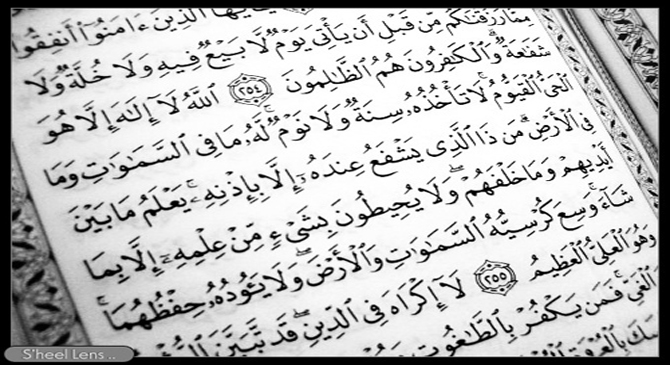 يَـٰٓأَيُّهَا ٱلَّذِينَ ءَامَنُوٓا۟ أَنفِقُوا۟
مِمَّا رَزَقْنَـٰكُم مِّن قَبْلِ أَن يَأْتِىَ يَوْمٌ لَّا بَيْعٌ فِيهِ وَلَا خُلَّةٌ وَلَا
شَفَـٰعَةٌ ۗ وَٱلْكَـٰفِرُونَ هُمُ ٱلظَّـٰلِمُونَ ٢٥٤ ٱللَّهُ لَآ إِلَـٰهَ إِلَّا هُوَ
ٱلْحَىُّ ٱلْقَيُّومُ ۚ لَا تَأْخُذُهُۥ سِنَةٌ وَلَا نَوْمٌ ۚ لَّهُۥ مَا فِى ٱلسَّمَـٰوَٰتِ وَمَا
فِى ٱلْأَرْضِ ۗ مَن ذَا ٱلَّذِى يَشْفَعُ عِندَهُۥٓ إِلَّا بِإِذْنِهِۦ ۚ يَعْلَمُ مَا بَيْنَ
أَيْدِيهِمْ وَمَا خَلْفَهُمْ ۖ وَلَا يُحِيطُونَ بِشَىْءٍ مِّنْ عِلْمِهِۦٓ إِلَّا بِمَا
شَآءَ ۚ وَسِعَ كُرْسِيُّهُ ٱلسَّمَـٰوَٰتِ وَٱلْأَرْضَ ۖ وَلَا يَـُٔودُهُۥ حِفْظُهُمَا ۚ
وَهُوَ ٱلْعَلِىُّ ٱلْعَظِيمُ ٢٥٥ لَآ إِكْرَاهَ فِى ٱلدِّينِ ۖ قَد تَّبَيَّنَ
ٱلْغَىِّ ۚ فَمَن يَكْفُرْ بِٱلطَّـٰغُوتِ
S'heel Lens ..